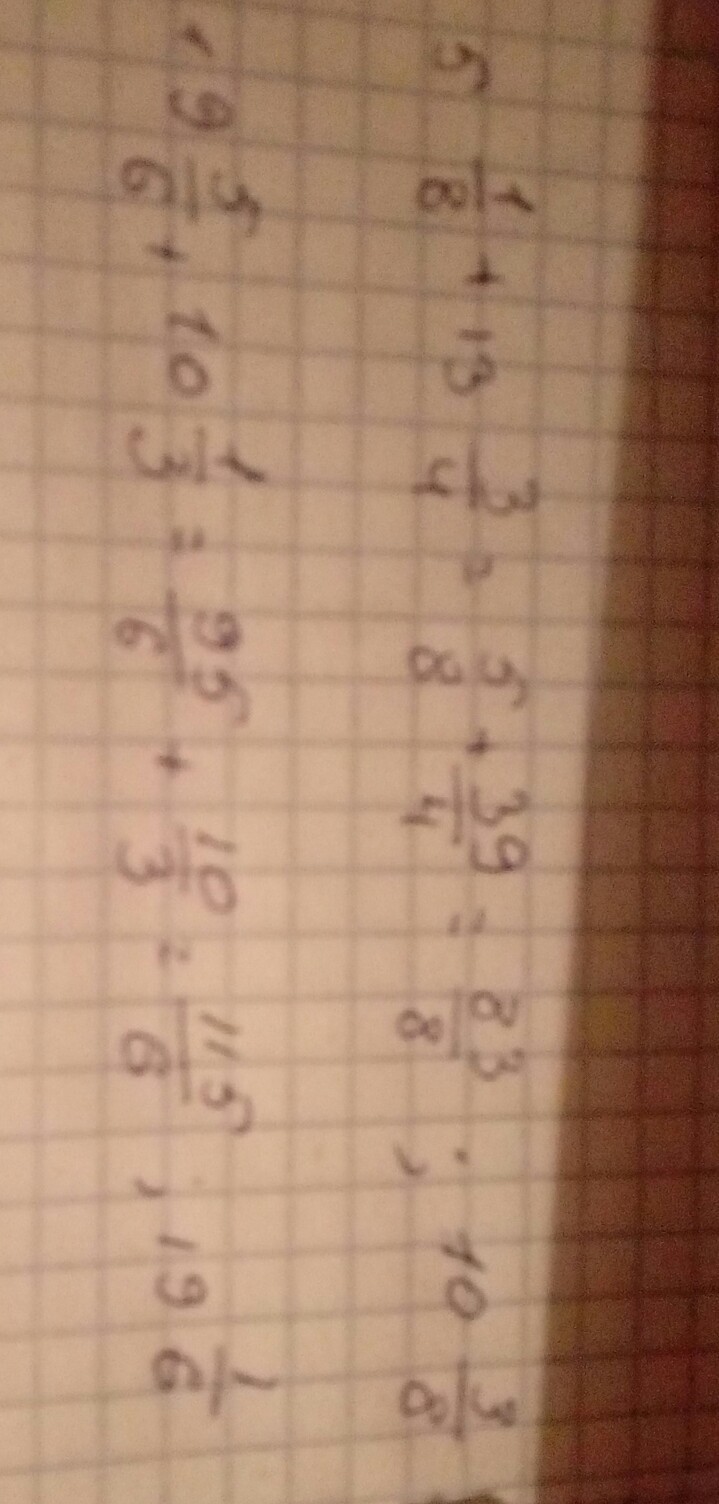 5 1/8 + 13 3/4 = 5/8 + 39/4 = 83/8 ; 10 3/8
19 5/6 + 10 1/3 = 95/6 + 10/3 = 115/6 , 19 1/6